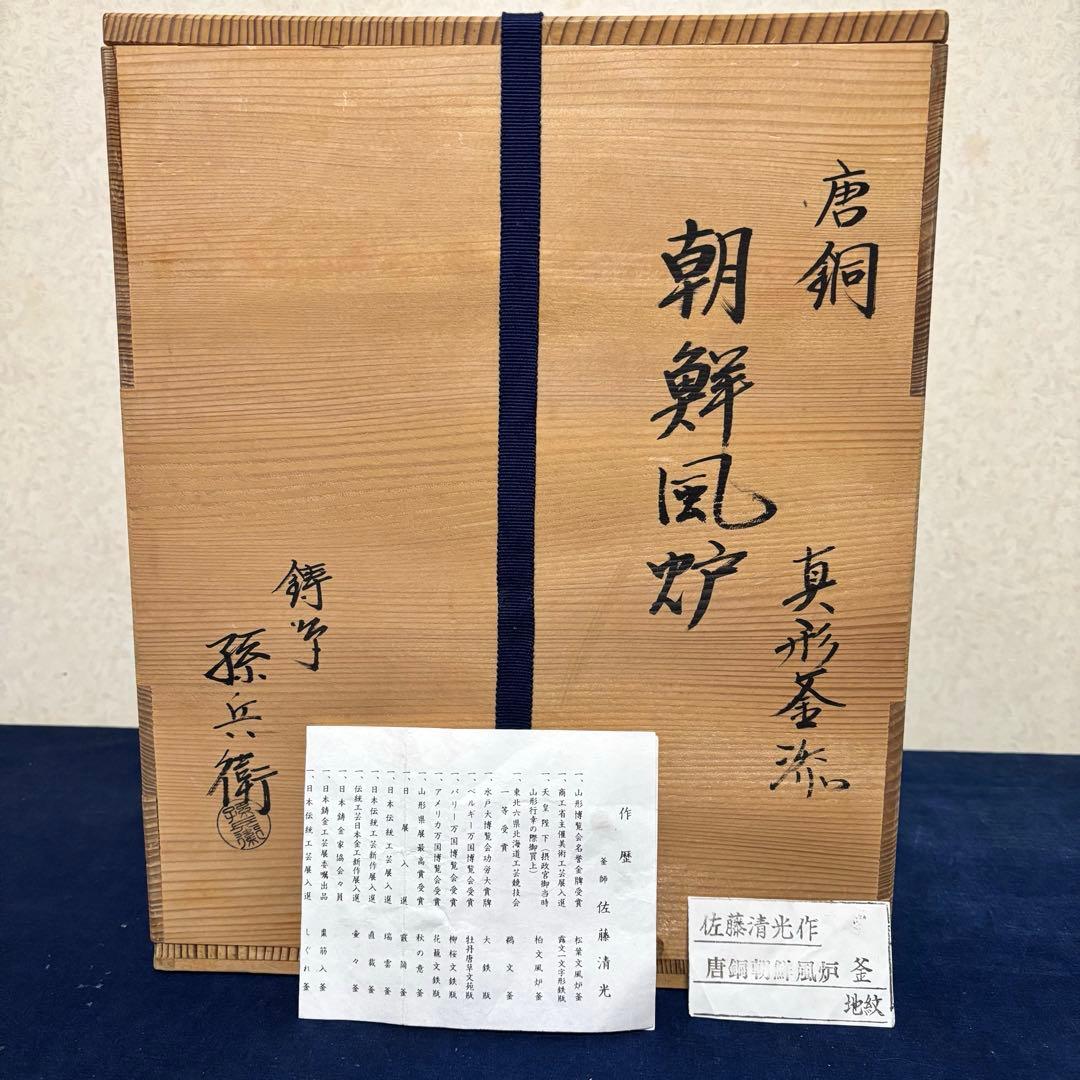 唐銅
朝鮮風炉
真形釜添
鋳師
孫兵衛
作歴
釜師 佐藤清光
一、山形博覧会名誉金牌受賞 松葉文風炉釜
一、商工省主催美術工芸展入選 露文一文字形鉄瓶
一、天皇陛下(摂政官御当時
山形行幸の際御買上) 柏文風炉釜
一、東北六県北海道工芸競技会
一等受賞 鶴文釜
一、水戸大博覧会功労大賞牌 大鉄瓶
一、ベルギー万国博覧会受賞 牡丹唐草文苑瓶
一、パリー万国博覧会受賞 柳桜文鉄瓶
一、アメリカ万国博覧会受賞 花籠文鉄瓶
一、山形県展最高賞受賞 秋の意釜
一、日展入選 霰筒釜
一、日本伝統工芸展入選 瑞雲釜
一、日本伝統工芸新作展入選 直裁釜
一、伝統工芸日本金工新作展入選 壷々釜
一、日本鋳金家協会々員
一、日本鋳金工芸展委嘱出品 重筋入釜
一、日本伝統工芸展入選 しぐれ釜
佐藤清光作
唐銅朝鮮風炉 釜
地紋